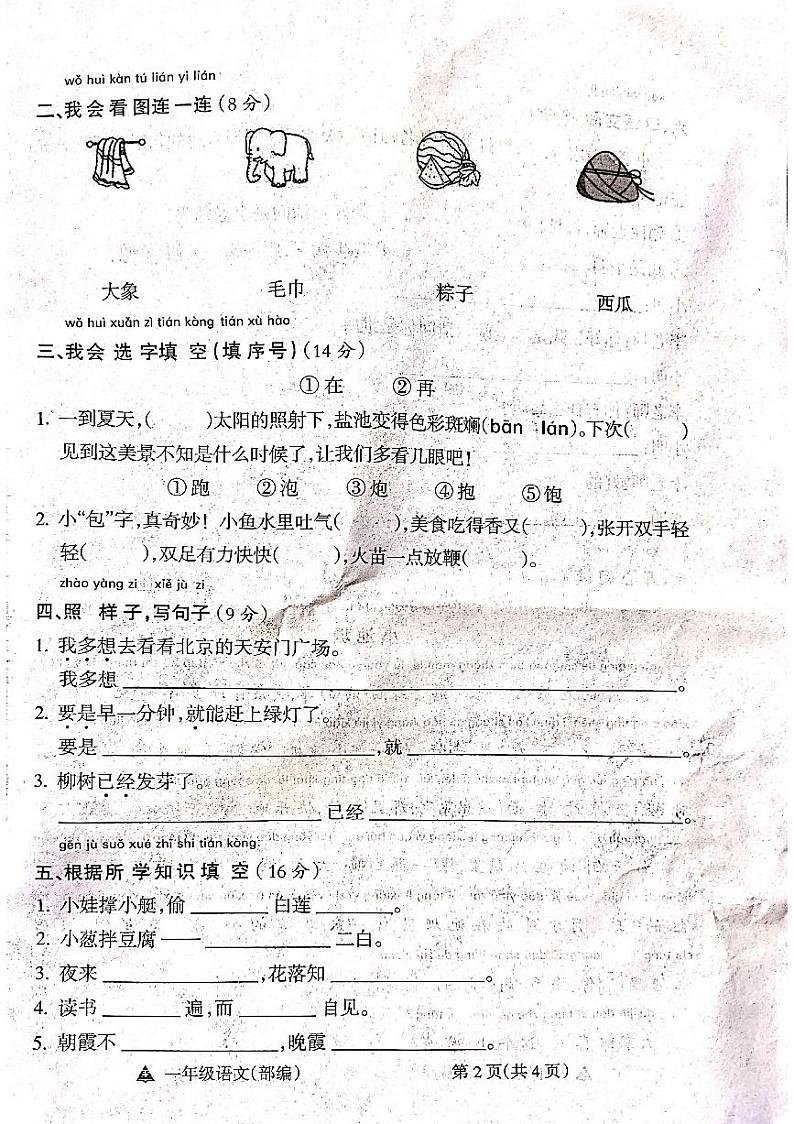 wǒ huì kàn tú lián yi lián
二、我会看图连一连(8分)
大象 毛巾 粽子 西瓜
wǒ huì xuǎn zì tián kòng tián xù hào
三、我会 选 字填 空(填 序号)(14分)
①在 ②再
1. 一到夏天,( )太阳的照射下,盐池变得色彩斑斓(bān lán)。下次( )
见到这美景不知是什么时候了,让我们多看几眼吧!
①跑 ②泡 ③炮 ④抱 ⑤饱
2. 小“包”字,真奇妙! 小鱼水里吐气( ),美食吃得香又( ),张开双手轻
轻( ),双足有力快快( ),火苗一点放鞭( )。
zhào yàng zi xiě jù zi
四、照 样 子,写句子(9分)
1. 我多想去看看北京的天安门广场。
我多想 。
2. 要是早一分钟,就能赶上绿灯了。
要是 ,就 。
3. 柳树已经发芽了。
已经 。
gēn jù suǒ xué zhī shi tián kòng
五、根据所 学知识填 空(16分)
1. 小娃撑小艇,偷 白莲 。
2. 小葱拌豆腐—— 二白。
3. 夜来 ,花落知 。
4. 读书 遍,而 自见。
5. 朝霞不 ,晚霞 。
一年级语文(部编) 第2页(共4页)